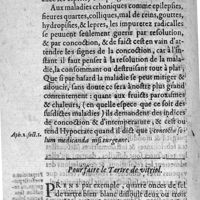 Aux maladies chroniques comme epilepsies,
fieures quartes, colliques, mal de reins, gouttes,
hydropisies, & lepres, les impuretez radicales
se peuuent seulement guerir par resolution,
& par concoction, & de faict c'est en vain d'at-
tendre les signes de la concoction, car à l'in-
stant il faut penser à la resolution de la mala-
die, la consommant ou destruisant tout à plat.
Que si par hazard la maladie se peut mitiger &
assoucir, sans doute elle se fera apres sinon plus
grand commentement: quant aux susdicts paroxismes
& chaleurs, (en quelle espece que ce soit des
susdictes maladies) ils demandent des indices
de concoction & d'intemperature, & c'est en-
tend Hypocrate quand il dict que
Aph. 2. sect. 1.
medicanda
Pour faire le Tartre de vitriol.
PRENS par exemple, quatre onces de sel
de tartre bien blanc dissout deux ou trois